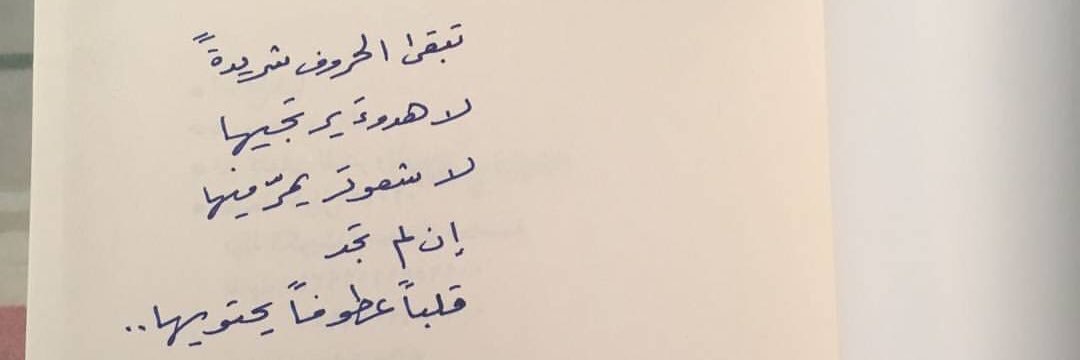 تبقى الحروف شريدةً
لا هدوءَ يرتجيها
لا شعورَ يمرّ فيها
إن لم تجد
قلباً عطوفاً يحتويها..